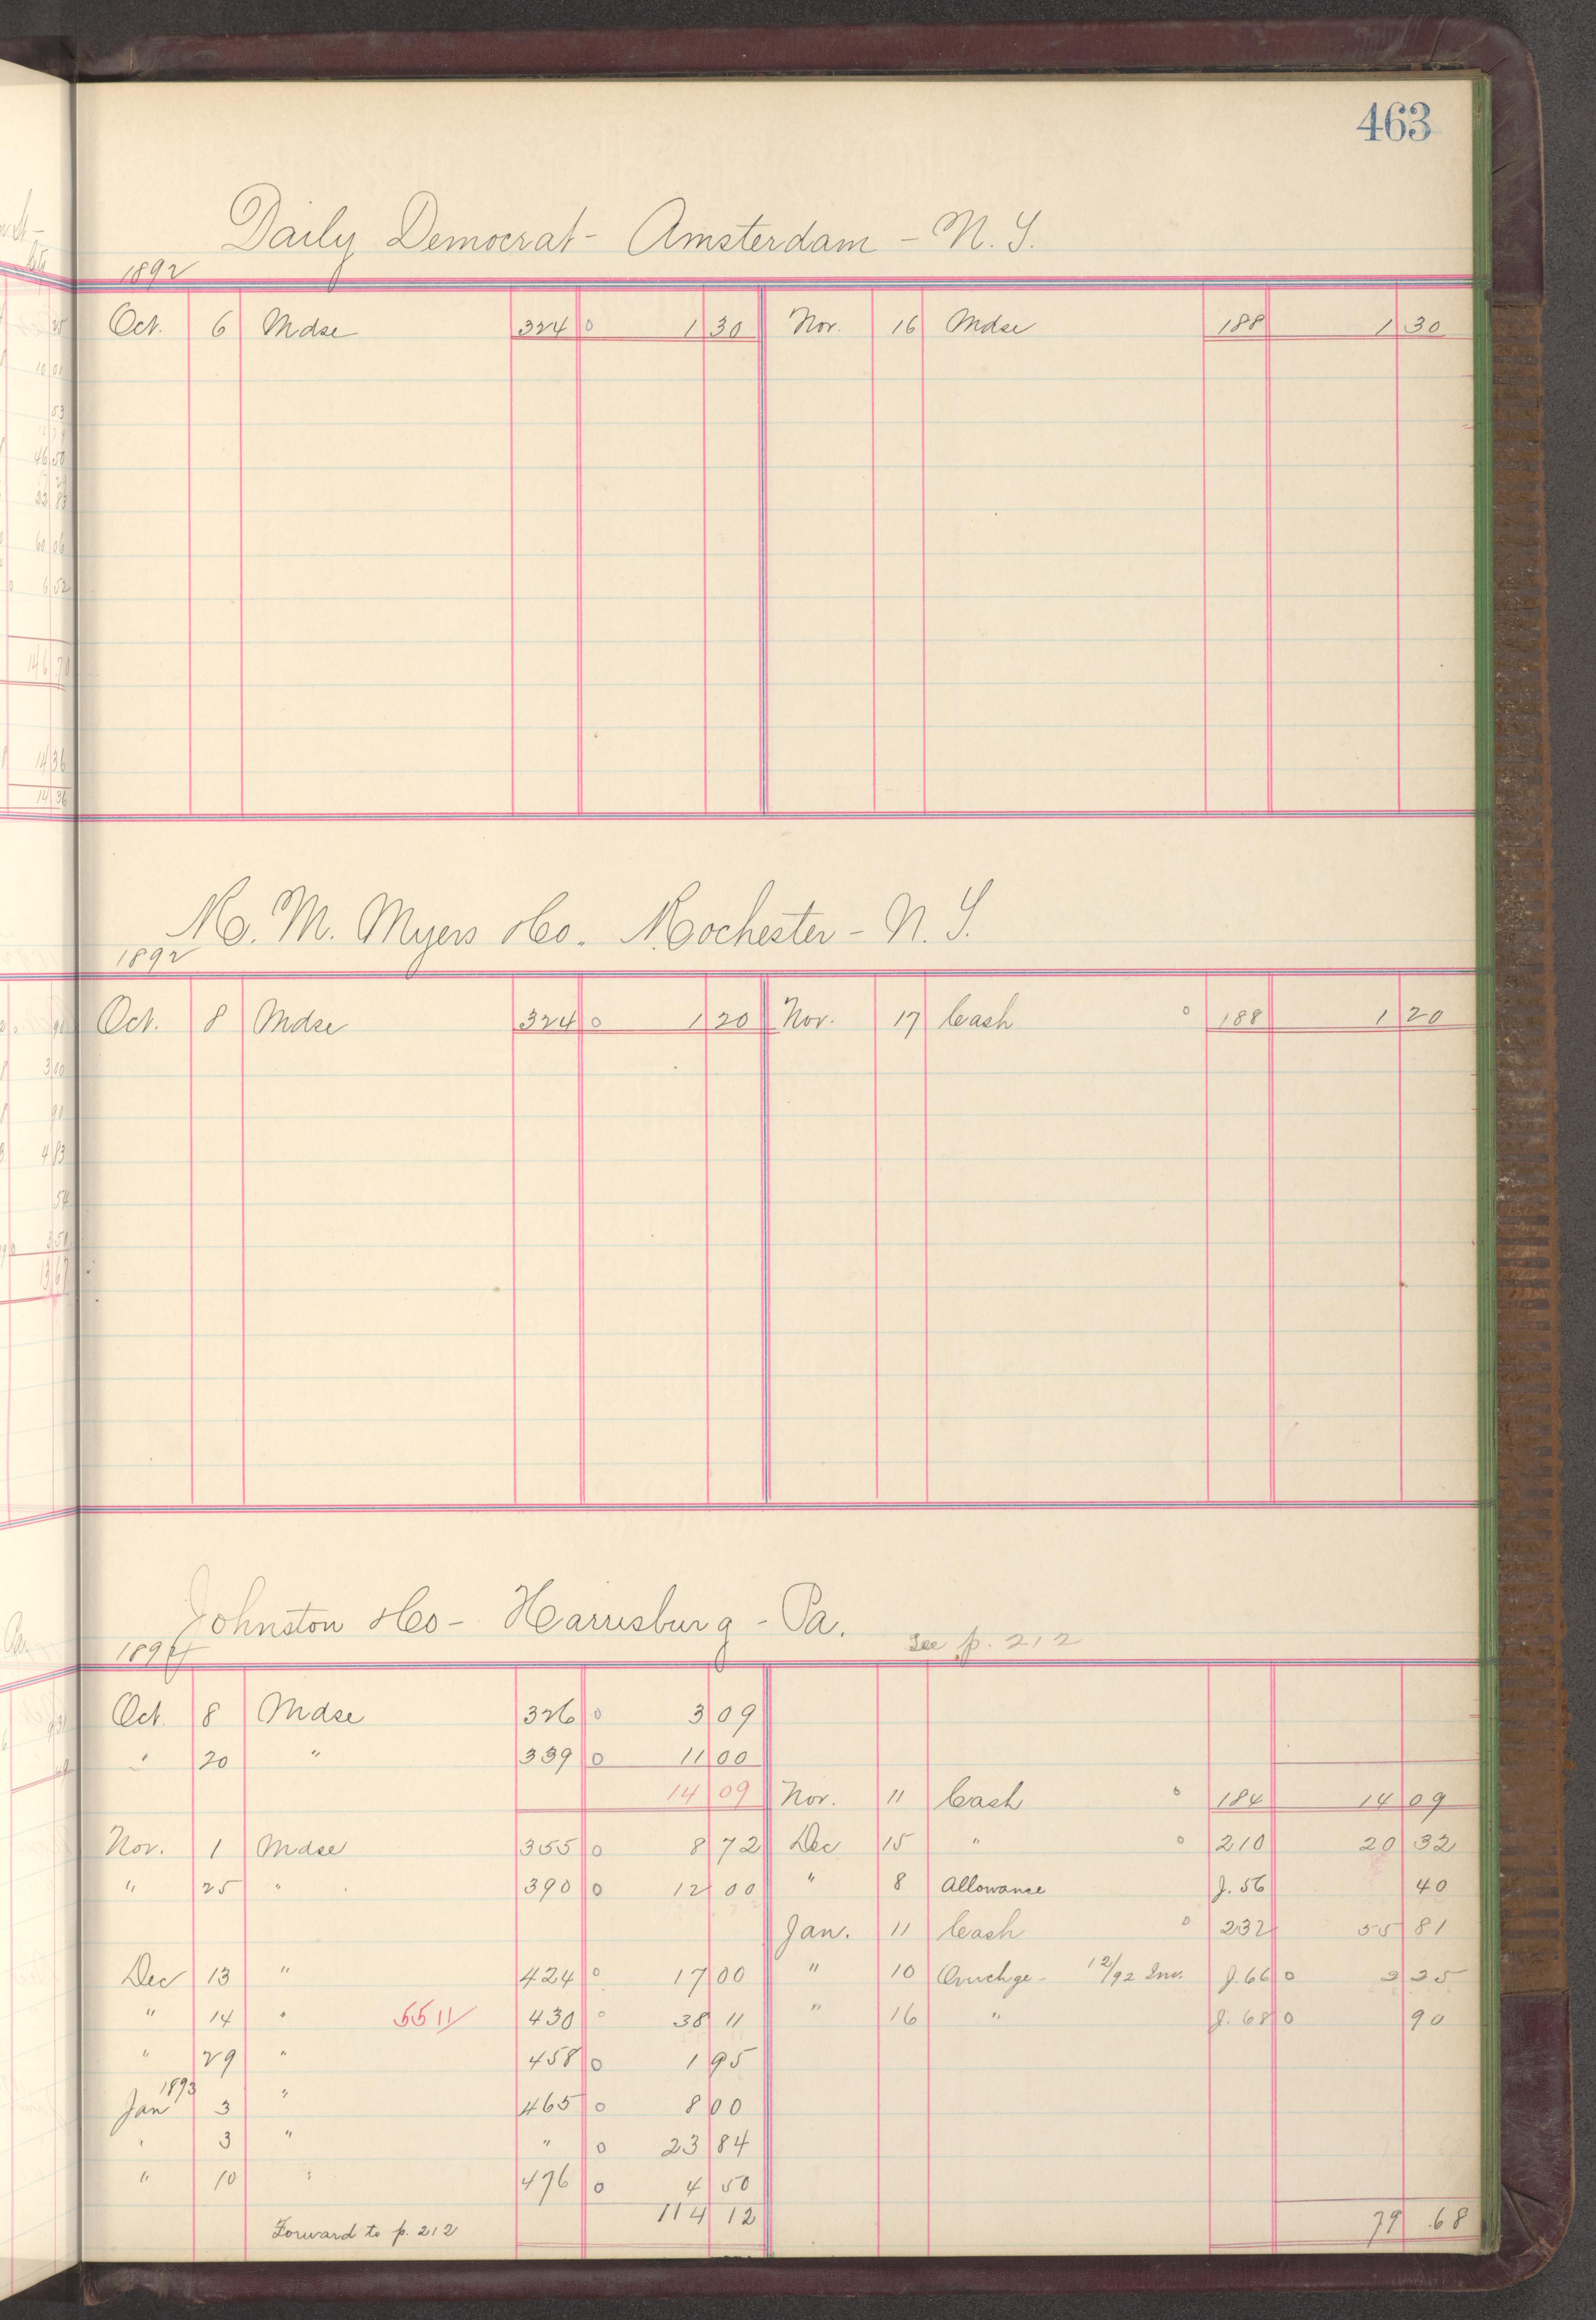 463
Daily Democrat - Amsterdam - N. Y.
1892
Oct. 6 Mdse 324 0 1 30 Nov. 16 Mdse 188 1 30
M. Myers & Co. Rochester - N. Y.
1892
Oct. 8 Mdse 324 0 1 20 Nov. 17 Cash 0 188 1 20
Johnston & Co - Harrisburg - Pa.
See p. 212
Oct. 8 Mdse 326 0 3 09
" 20 " 339 0 11 00
14 09 Nov. 11 Cash 0 184 14 09
Nov. 1 Mdse 355 0 8 72 Dec 15 " 0 210 20 32
" 25 " 390 0 12 00 " 8 Allowance J. 56 40
Jan. 11 Cash 0 232 55 81
Dec 13 " 424 0 17 00 " 10 12/92 Inv. J. 66 0
" 14 " 55 11 430 0 38 11 " 16 " J. 68 0 90
" 29 " 458 0 1 95
1893
Jan 3 " 465 0 8 00
" 3 " " 0 23 84
" 10 " 476 0 4 50
114 12 79 68
Forward to p. 212